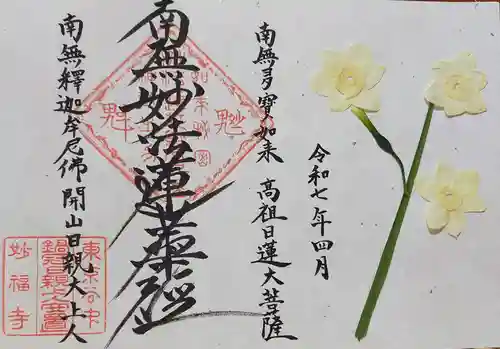 令和七年四月
南無多寳如来 高祖日蓮大菩薩
南無妙法蓮華経
南無釋迦牟尼佛 開山日親大上人
妙福寺